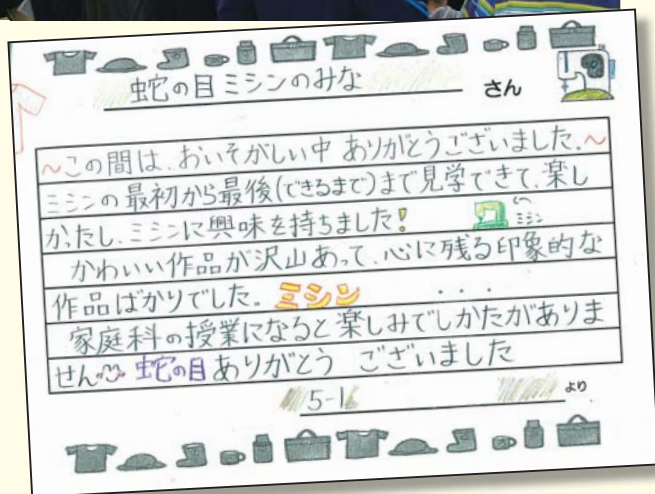 蛇の目ミシンのみな さん
～この間は、おいそがしい中 ありがとうございました。～
ミシンの最初から最後(できるまで)まで見学できて、楽し
かったし、ミシンに興味を持ちました!
ミシン
かわいい作品が沢山あって、心に残る印象的な
作品ばかりでした。 ミシン ・・・
家庭科の授業になると楽しみでしかたがありま
せん 蛇の目ありがとう ございました
5-1 より